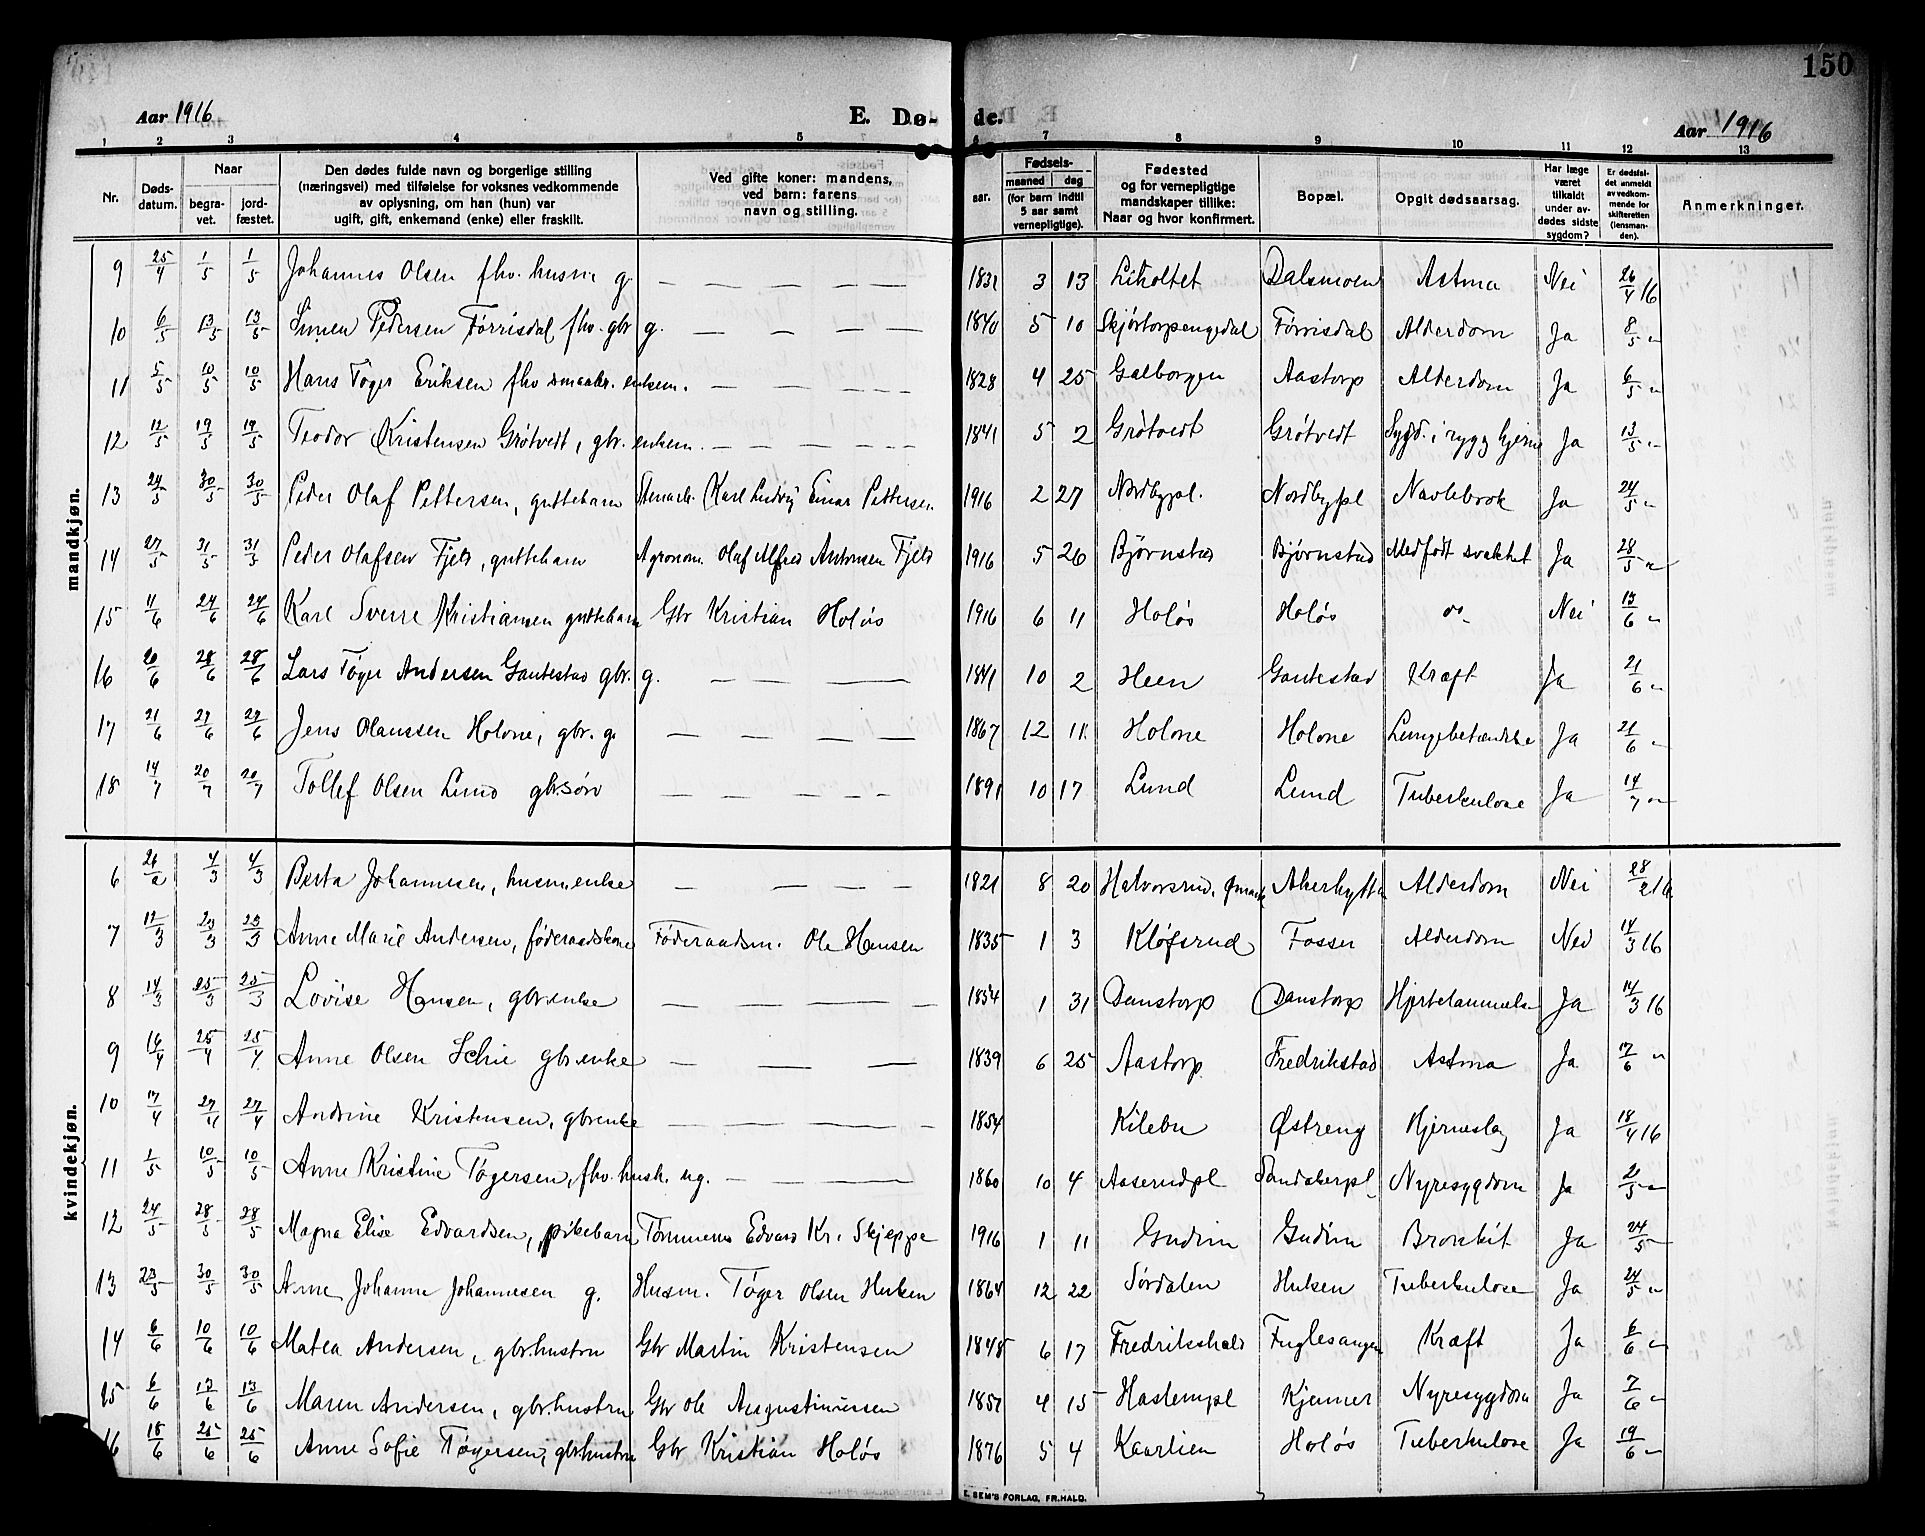 150
Aar 1916 E. Dø- de. Aar 1916
1 2 3 4 5 6 7 8 9 10 11 12 13
Nr. Dødsdatum. Naar begravet. jordfæstet. Den dødes fulde navn og borgerlige stilling (næringsvei) med tilføielse for voksnes vedkommende av oplysning, om han (hun) var ugift, gift, enkemand (enke) eller fraskilt. Ved gifte koner: mandens, ved barn: farens navn og stilling. Fødsels- aar. maaned dag (for barn indtil 5 aar samt vernepligtige). Fødested og for vernepligtige mandskaper tillike: Naar og hvor konfirmert. Bopæl. Opgit dødsaarsag. Har læge været tilkaldt under avdødes sidste sygdom? Er dødsfaldet anmeldt av vedkommende for skifteretten (lensmanden). Anmerkninger.
mandkjøn.
9 25/4 1/5 1/5 Johannes Olsen fhv. husm. g. — — — — — 1831 3 13 Liholtet Dalsmoen Astma Nei 26/4 16
10 6/5 13/5 13/5 Simen Pedersen Tørrisdal fhv. gbr g. — — — — 1840 5 10 Skjørtorpengedal Tørrisdal Alderdom Ja 8/5 "
11 5/5 10/5 10/5 Hans Tøger Eriksen fhv smaabr. enkem. — — — — 1828 4 25 Galborgen Aastorp Alderdom Ja 6/5 "
12 12/5 19/5 19/5 Teodor Kristensen Grøtvedt, gbr. enkem. — — — — 1841 5 2 Grøtvedt Grøtvedt Sygd. i rygg hjerne Ja 13/5 "
13 24/5 30/5 30/5 Peder Olaf Pettersen, guttebarn Stenarb. Karl Ludvig Einar Pettersen 1916 2 27 Nordbypl. Nordbypl Navlebrok Ja 24/5 "
14 27/5 31/5 31/5 Peder Olafsen Fjeld, guttebarn Agronom. Olaf Alfred Antonsen Fjeld 1916 5 26 Bjørnstad Bjørnstad Medfødt svakhet Ja 28/5 "
15 11/6 24/6 24/6 Karl Sverre Kristiansen guttebarn Gbr Kristian Holøs 1916 6 11 Holøs Holøs do Nei 13/6 "
16 20/6 28/6 28/6 Lars Tøger Andersen Gautestad gbr. g. — — — 1841 10 2 Heen Gautestad Kræft Ja 21/6 "
17 21/6 27/6 27/6 Jens Olaussen Holone, gbr. g. — — — — 1867 12 11 Holone Holone Lungebetændelse Ja 21/6 "
18 14/7 20/7 20/7 Tollef Olsen Lund gbr.søn — — — — — 1891 10 17 Lund Lund Tuberkulose Ja 14/7 "
kvindekjøn.
6 26/2 4/3 4/3 Berta Johannesen, husm.enke — — — — 1821 8 20 Halvorsrud, Ømark Akerhytta Alderdom Nei 28/2 16
7 12/3 23/3 23/3 Anne Marie Andersen, føderaadskone Føderaadsm. Ole Hansen 1835 1 3 Kløfsrud Fosser Alderdom Nei 14/3 16
8 14/3 25/3 25/3 Lovise Hansen, gbr.enke — — — — 1834 1 31 Danstorp Danstorp Hjertelammelse Ja 14/3 16
9 16/4 25/4 25/4 Anne Olsen Schie gbr.enke — — — 1839 6 25 Aastorp Fredrikstad Astma Ja 17/6 "
10 17/4 27/4 27/4 Andrine Kristensen, gbrenke — — — — 1854 Kilebu Østreng Hjerneslag Ja 18/4 16
11 1/5 10/5 10/5 Anne Kristine Tøgersen, fhv. hush. ug. — — — 1860 10 4 Aaserudpl Sandakerpl. Nyresygdom Ja 2/5 "
12 24/5 28/5 28/5 Magna Elise Edvardsen, pikebarn Tømmerm Edvard Kr. Skjeppe 1916 1 11 Gudim Gudim Bronkit Ja 24/5 "
13 23/5 30/5 30/5 Anne Johanne Johannesen g. Husm. Tøger Olsen Huken 1864 12 22 Sørdalen Huken Tuberkulose Ja 24/5 "
14 6/6 10/6 10/6 Matea Andersen, gbr.hustru Gbr Martin Kristensen 1848 6 17 Fredrikshald Fuglesangen Kræft Ja 6/6 "
15 6/6 13/6 13/6 Maren Andersen, gbr.hustru Gbr Ole Augustinusen 1857 4 15 Hastempl Kjenner Nyresygdom Ja 7/6 "
16 18/6 25/6 25/6 Anne Sofie Tøgersen, gbr.hustru Gbr Kristian Holøs 1876 5 4 Kaarlien Holøs Tuberkulose Ja 19/6 "
E. SEM'S FORLAG, FR.HALD.